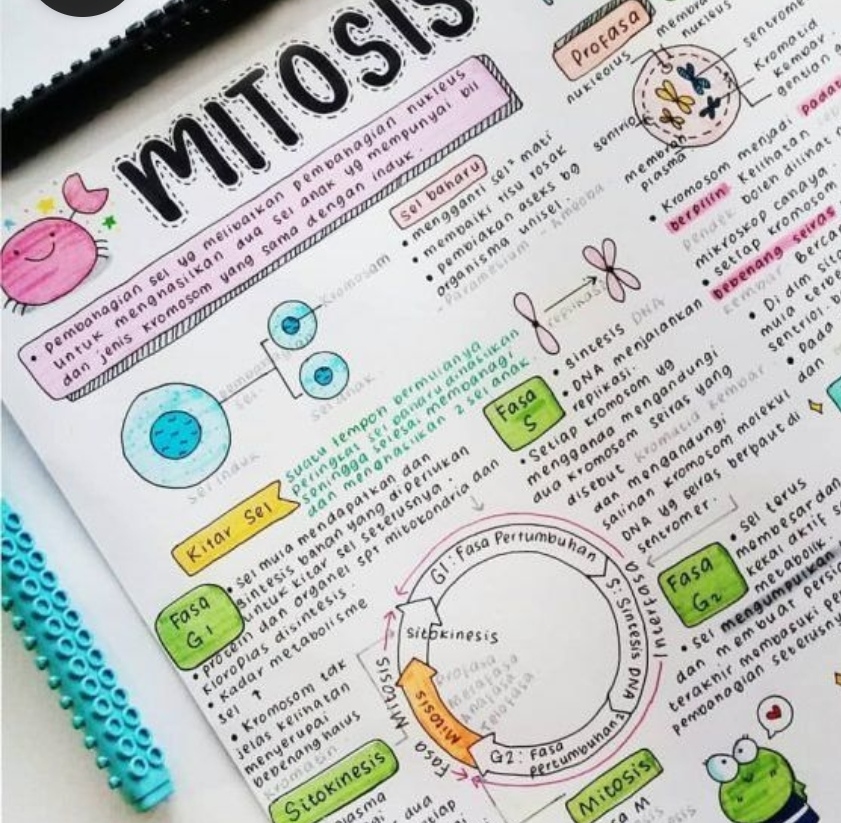 MITOSIS
• Pembahagian sel yg melibatkan pembahagian nukleus
untuk menghasilkan dua sel anak yg mempunyai bil
dan jenis kromosom yang sama dengan induk.
sel baharu
• mengganti sel² mati
• membaiki tisu rosak
• pembiakan aseks bg
organisma unisel.
- Paramesium - Amoeba
Kromosom
sel anak
sel induk
replikasi
Profasa
nukleolus
nukleus
Kromatid
kembar
membran
plasma
• Kromosom menjadi padat
berpilin. Kelihatan
pendek boleh dilihat
mikroskop cahaya.
• setiap kromosom
bebenang seiras
kembar
• Di dlm
mula
sentriol
• Pada
suatu tempoh bermulanya
peringkat sel baharu dihasilkan
sehingga selesai membahagi
dan menghasilkan 2 sel anak.
Kitar Sel
Fasa
S
• sintesis DNA
• DNA menjalankan
replikasi.
• Setiap kromosom yg
mengganda mengandungi
dua kromosom seiras yang
disebut kromatid kembar
dan mengandungi
salinan kromosom molekul
DNA yg seiras berpaut di
sentromer.
Fasa
G1
• sel mula mendapatkan dan
sintesis bahan yang diperlukan
untuk kitar sel seterusnya.
• protein dan organel spt mitokondria dan
kloroplas disintesis.
• Kadar metabolisme
sel ↑
• Kromosom tak
jelas kelihatan
menyerupai
bebenang halus
kromatin
G1: Fasa Pertumbuhan
S: Sintesis DNA
G2: Fasa
pertumbuhan2
Interfasa
sitokinesis
Mitosis
Profasa
Metafasa
Anafasa
Telofasa
Fasa Mitosis
Fasa
G2
• sel terus
membesar dan
kekal aktif
metabolik.
• sel mengumpulkan
dan membuat
terakhir memasuki
pembahagian seterusnya
Sitokinesis
dua
Mitosis
M